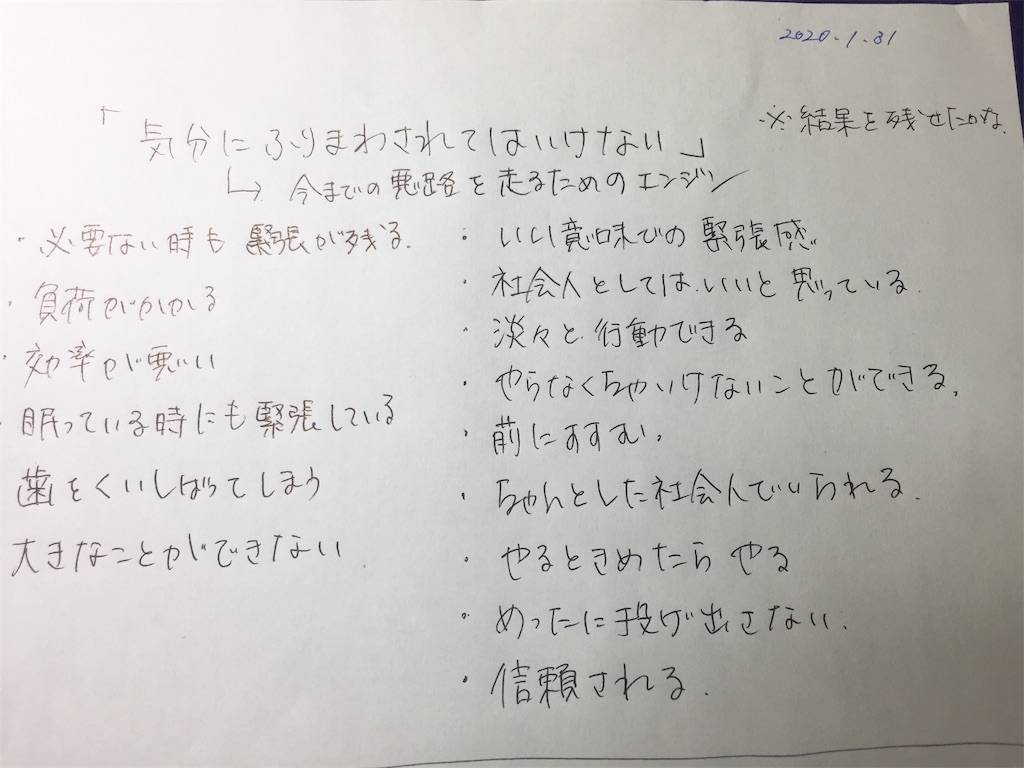 2020.1.31
※結果を残せたかな
「気分にふりまわされてはいけない」
↳今までの悪路を走るためのエンジン
・必要ない時も緊張が残る.
・負荷がかかる
・効率が悪い
・眠っている時にも緊張している
歯をくいしばってしまう
大きなことができない
・いい意味での緊張感
・社会人としてはいいと思っている.
・淡々と行動できる
・やらなくちゃいけないことができる.
・前にすすむ.
・ちゃんとした社会人でいられる.
・やるときめたらやる
・めったに投げ出さない.
・信頼される.